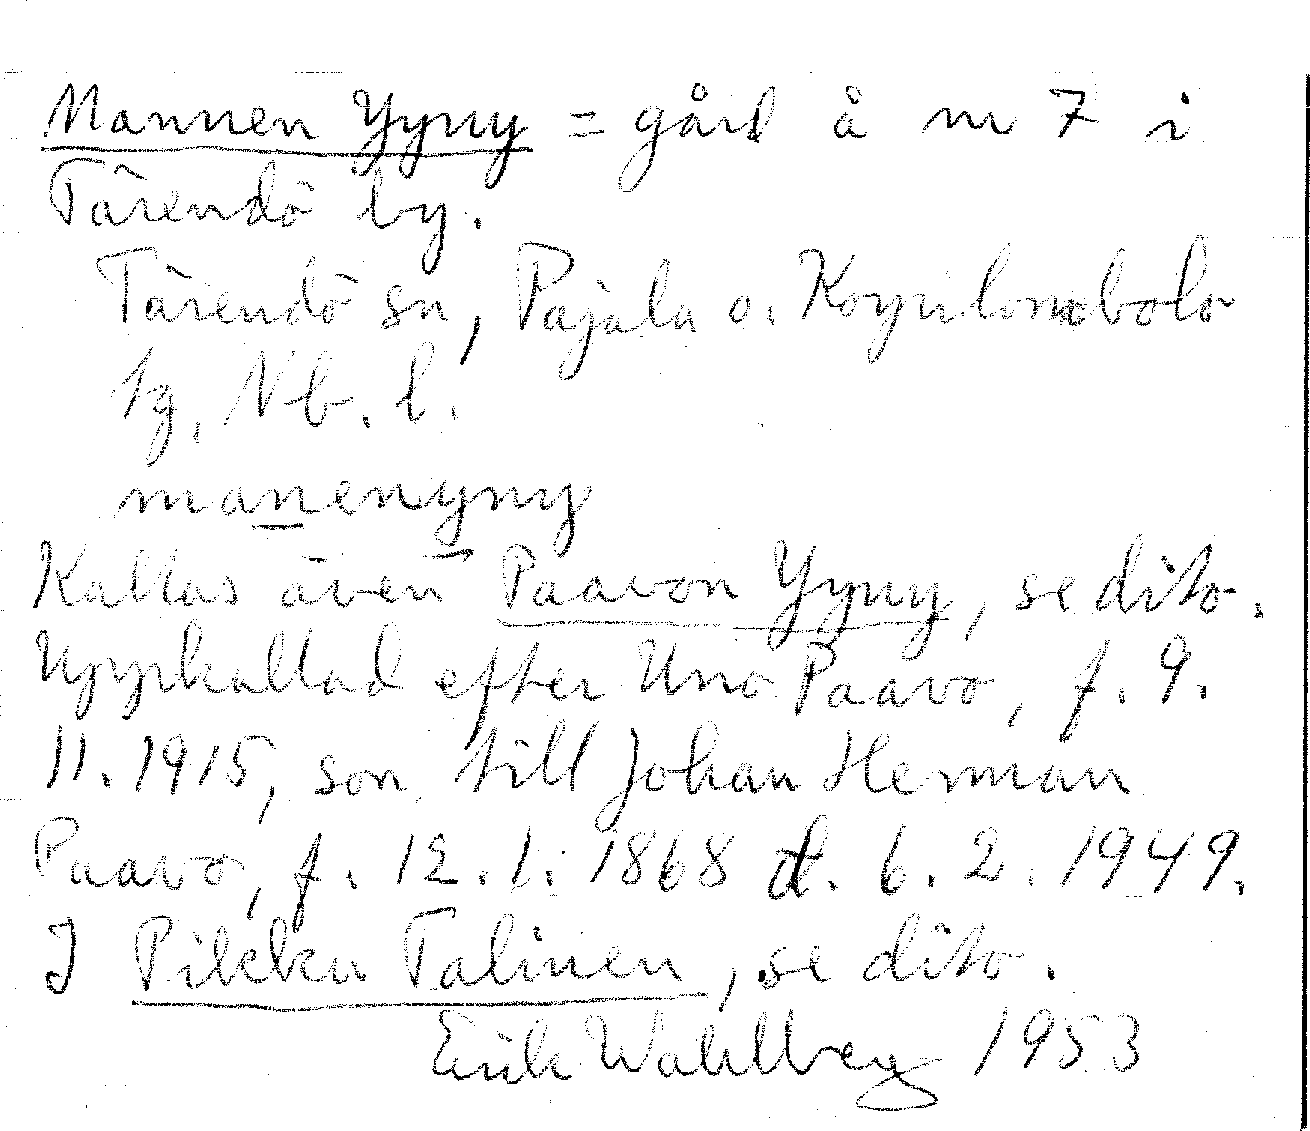 Mannen Yyny = gård å m 7 i
Tärendö by.
Tärendö sn, Pajala o. Korpilombolo
tg, Nb. l.
manenyny
Kallas även Paavon Yyny, se dito.
Uppkallad efter Uno Paavo, f. 9.
11. 1915, son till Johan Herman
Paavo, f. 12. 1. 1868 d. 6. 2. 1949.
I Pikku Talinen, se dito.
Erik Wahlberg 1953